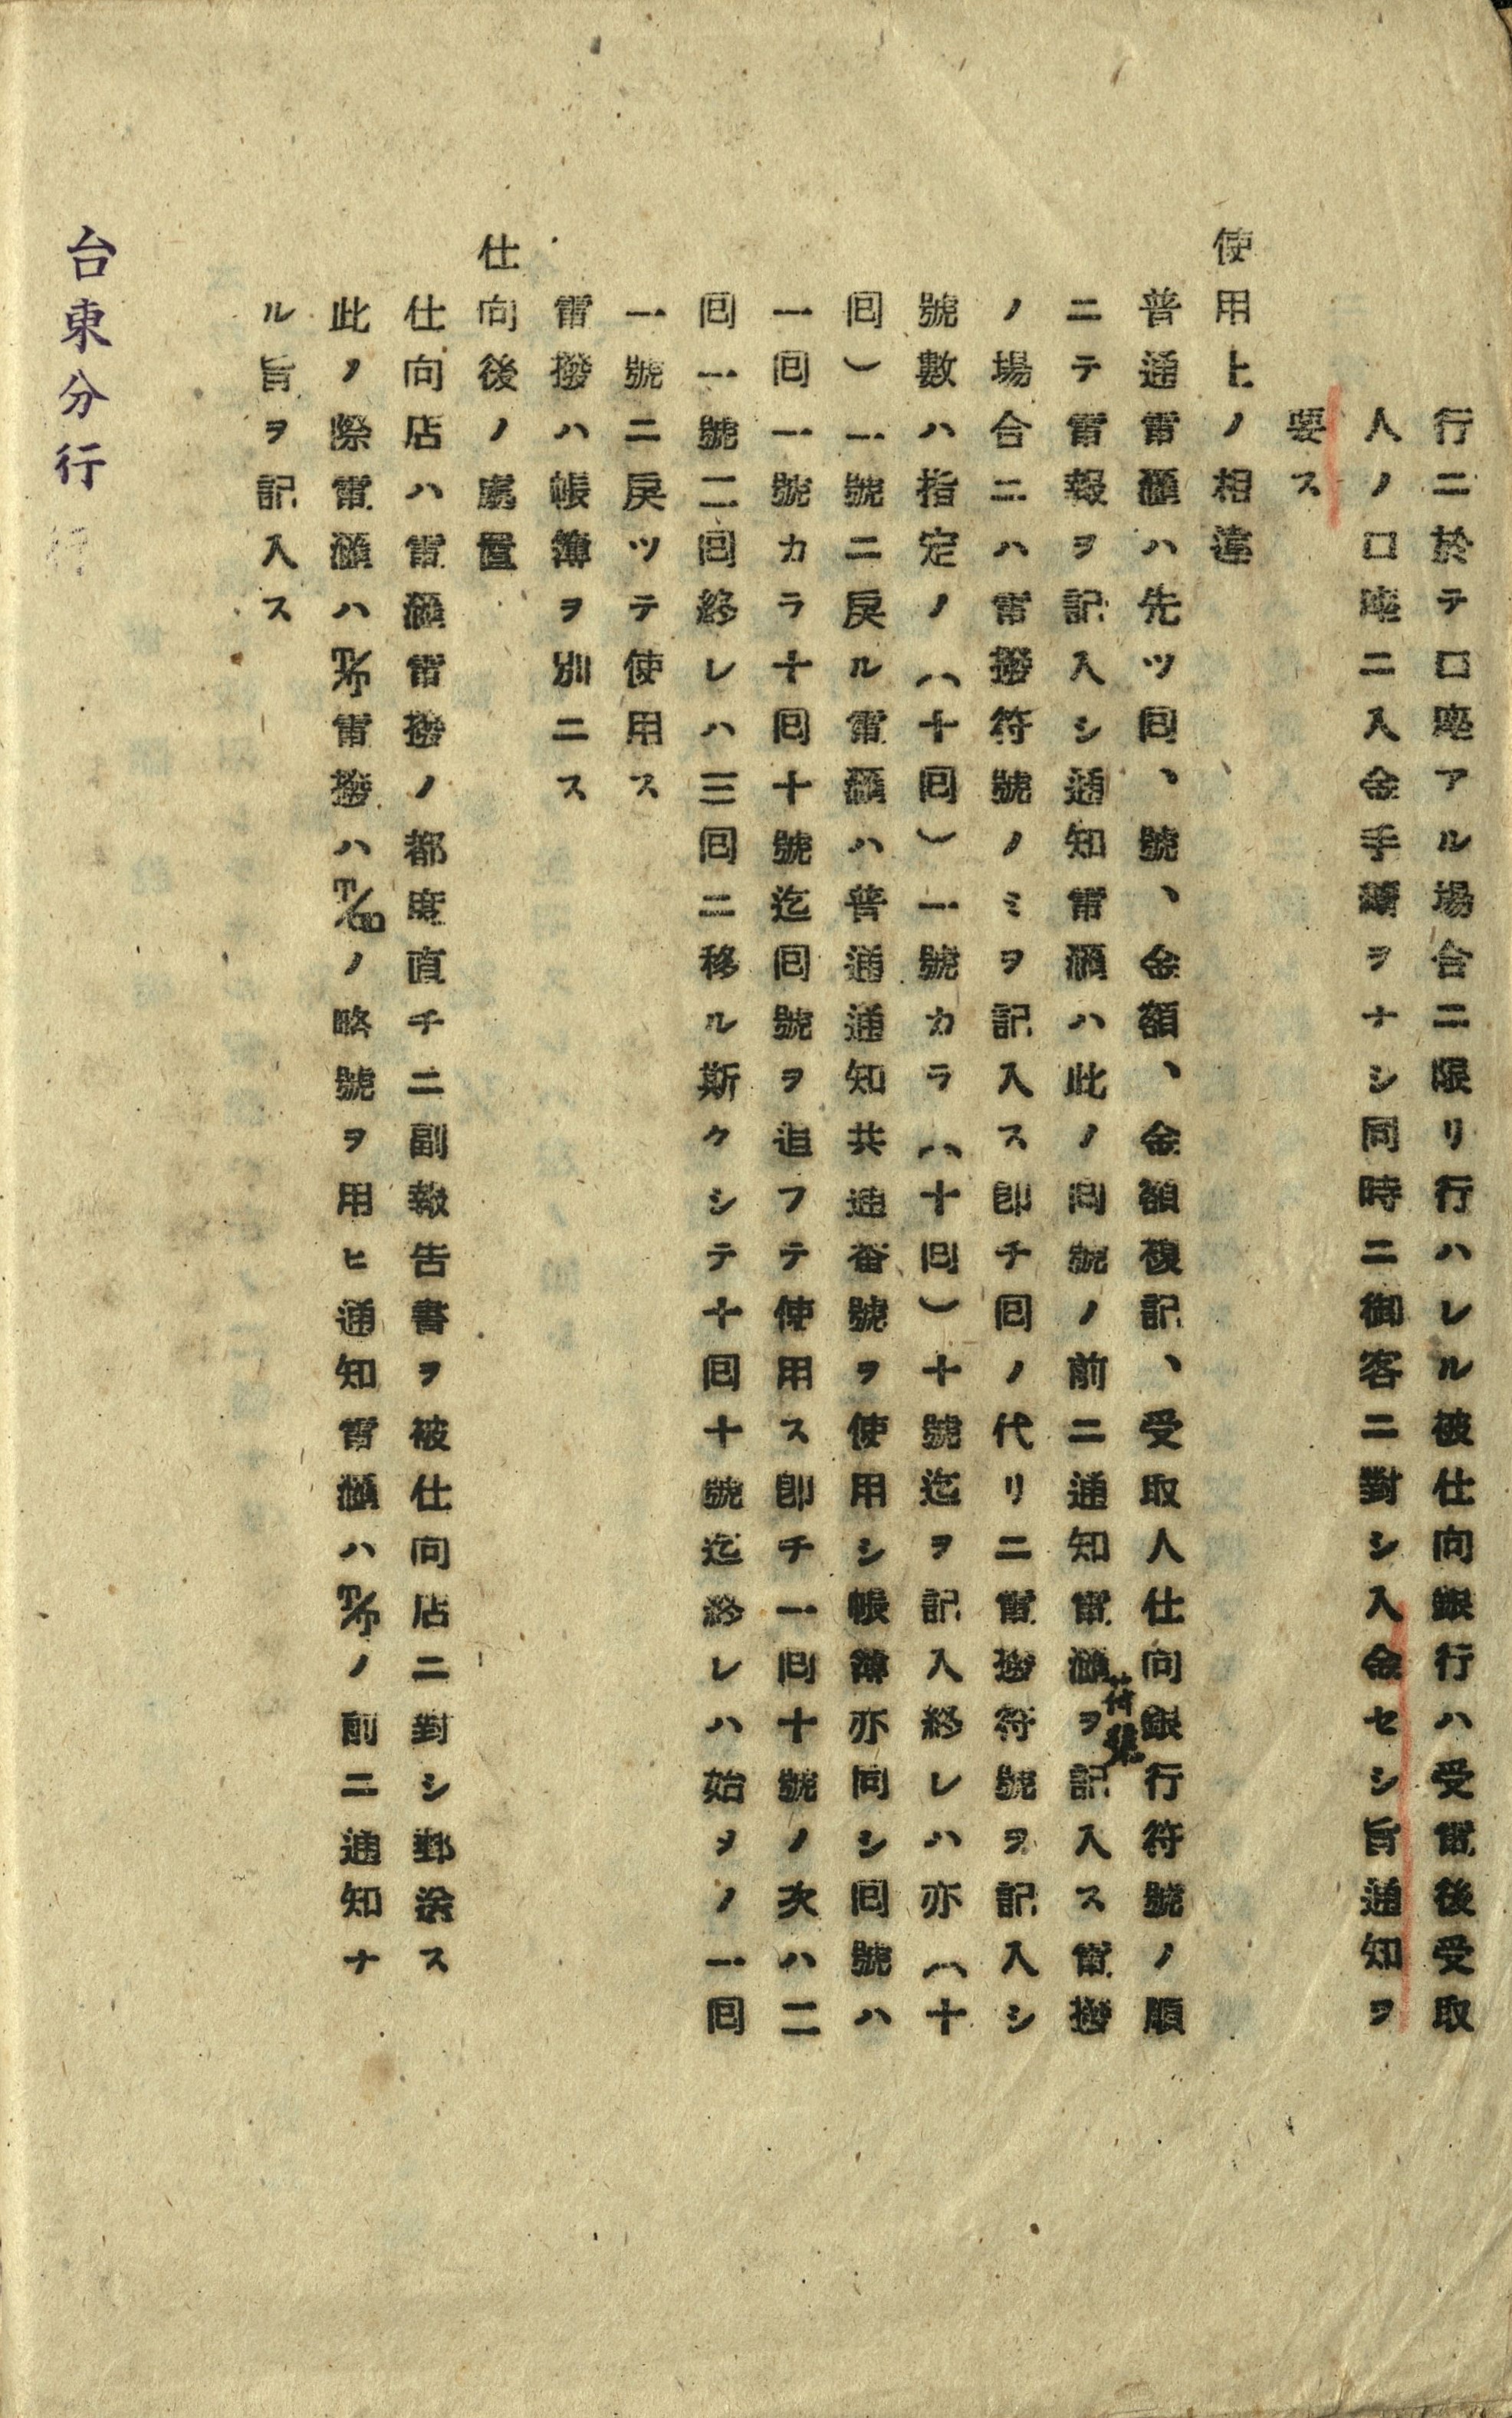 行ニ於テ口座アル場合ニ限リ行ハレル被仕向銀行ハ受電後受取
人ノ口座ニ入金手續ヲナシ同時ニ御客ニ對シ入金セシ旨通知ヲ
要ス
使用上ノ相違
普通電爲ハ先ツ回、號、金額、金額複記、受取人仕向銀行符號ノ順
ニテ電報ヲ記入シ通知電爲ハ此ノ回號ノ前ニ通知電爲符號ヲ記入ス電撥
ノ場合ニハ電撥符號ノミヲ記入ス卽チ回ノ代リニ電撥符號ヲ記入シ
號數ハ指定ノ(十回)一號カラ(十回)十號迄ヲ記入終レハ亦(十
回)一號ニ戻ル電爲ハ普通通知共通番號ヲ使用シ帳簿亦同シ回號ハ
一回一號カラ十回十號迄回號ヲ追フテ使用ス卽チ一回十號ノ次ハ二
回一號二回終レハ三回ニ移ル斯クシテ十回十號迄終レハ始メノ一回
一號ニ戻ツテ使用ス
電撥ハ帳簿ヲ別ニス
仕向後ノ處置
仕向店ハ電爲電撥ノ都度直チニ副報告書ヲ被仕向店ニ對シ郵送ス
此ノ際電爲ハT/T電撥ハノ略號ヲ用ヒ通知電爲ハT/Tノ前ニ通知ナ
ル旨ヲ記入ス
台東分行